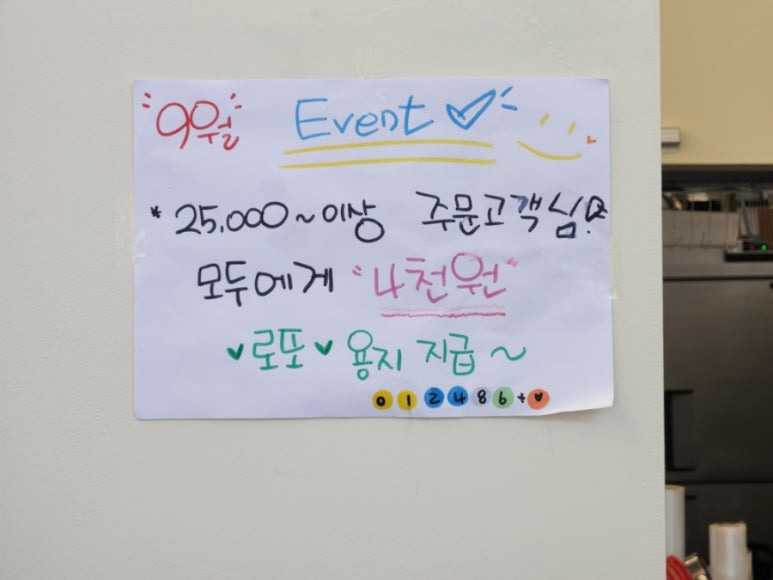 9월 Event
* 25,000~이상 주문고객님!
모두에게 "4천원"
로또 용지 지급~
0 1 2 4 8 6 +